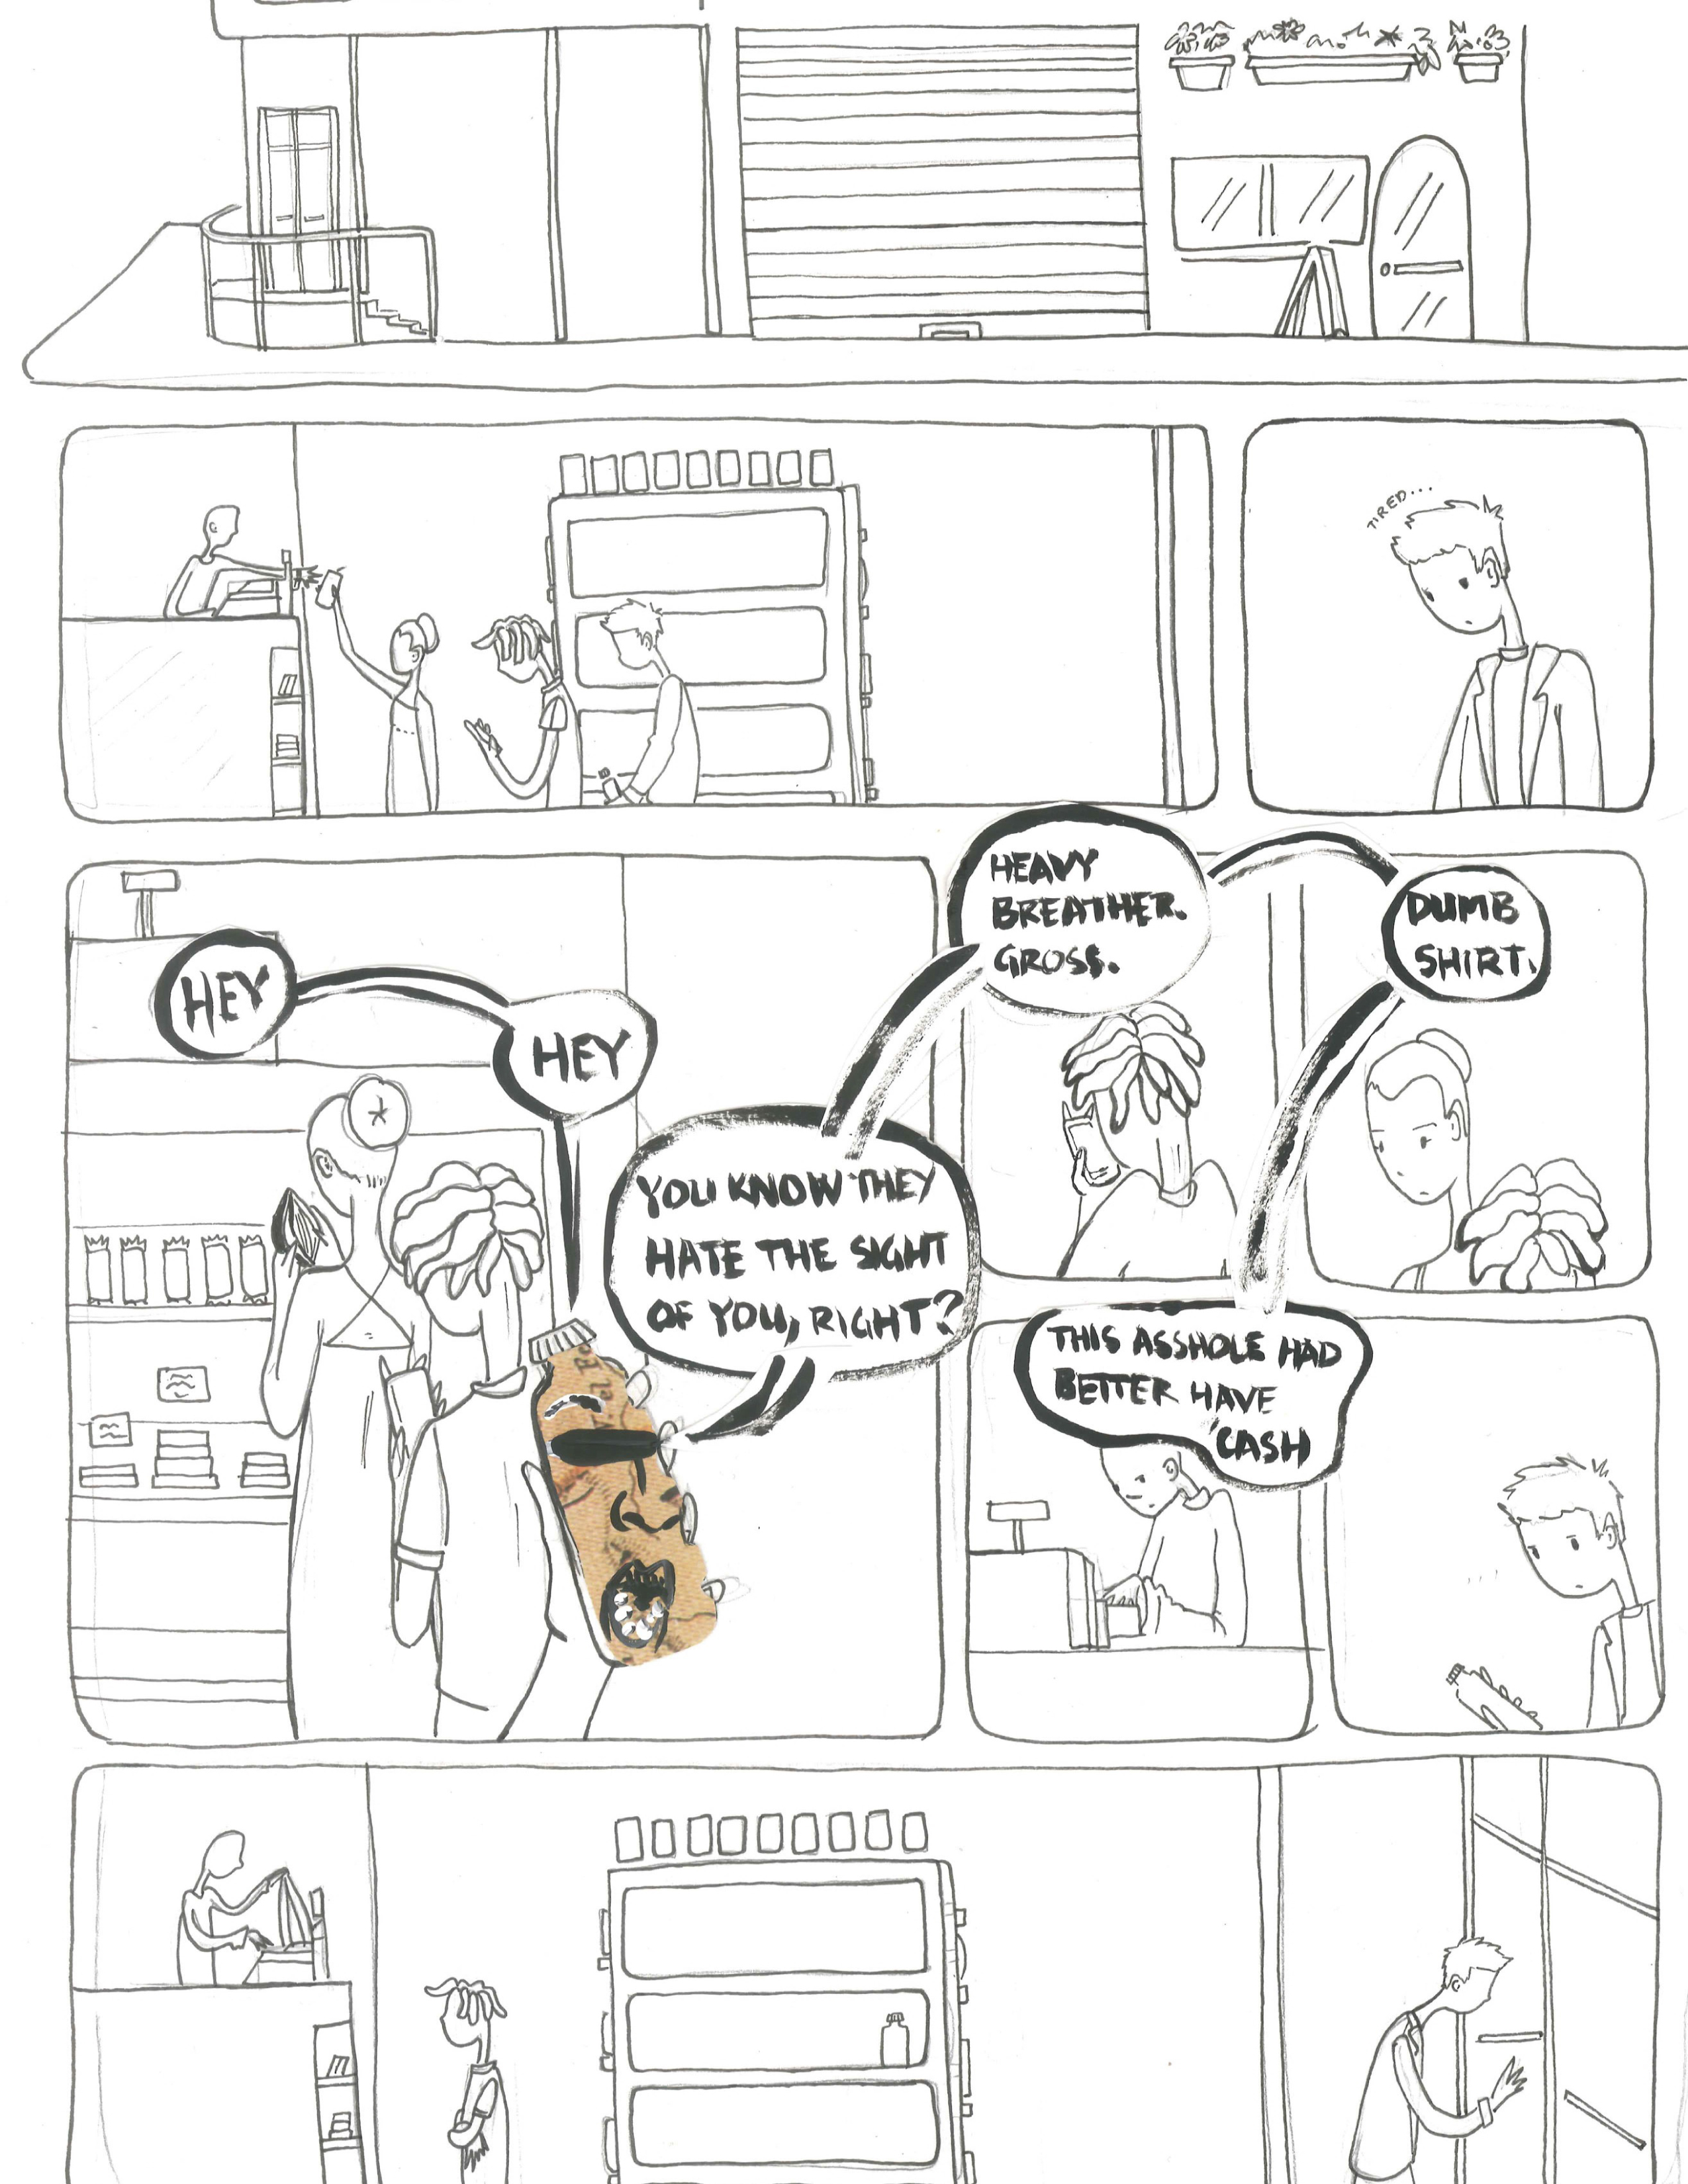 TIRED...
HEY
HEY
YOU KNOW THEY
HATE THE SIGHT
OF YOU, RIGHT?
HEAVY
BREATHER.
GROSS.
DUMB
SHIRT.
THIS ASSHOLE HAD
BETTER HAVE
CASH